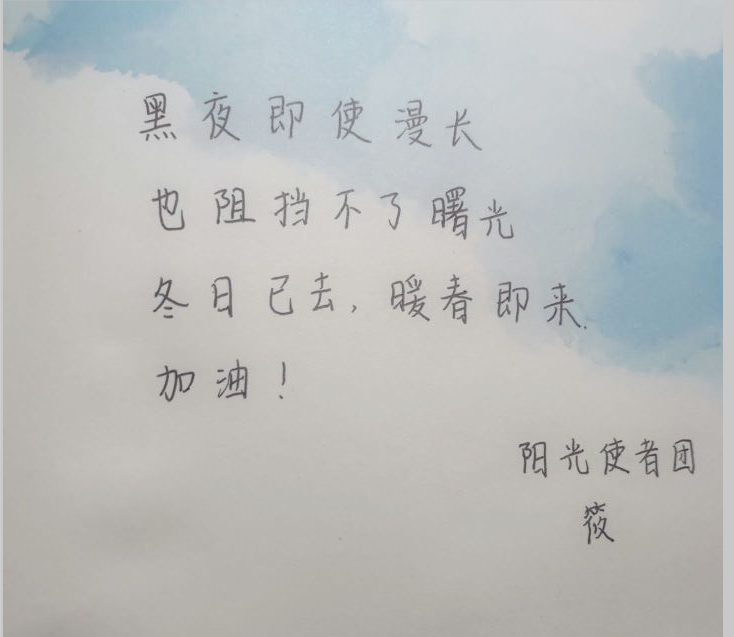 黑夜即使漫长
也阻挡不了曙光
冬日已去,暖春即来.
加油!
阳光使者团
筱